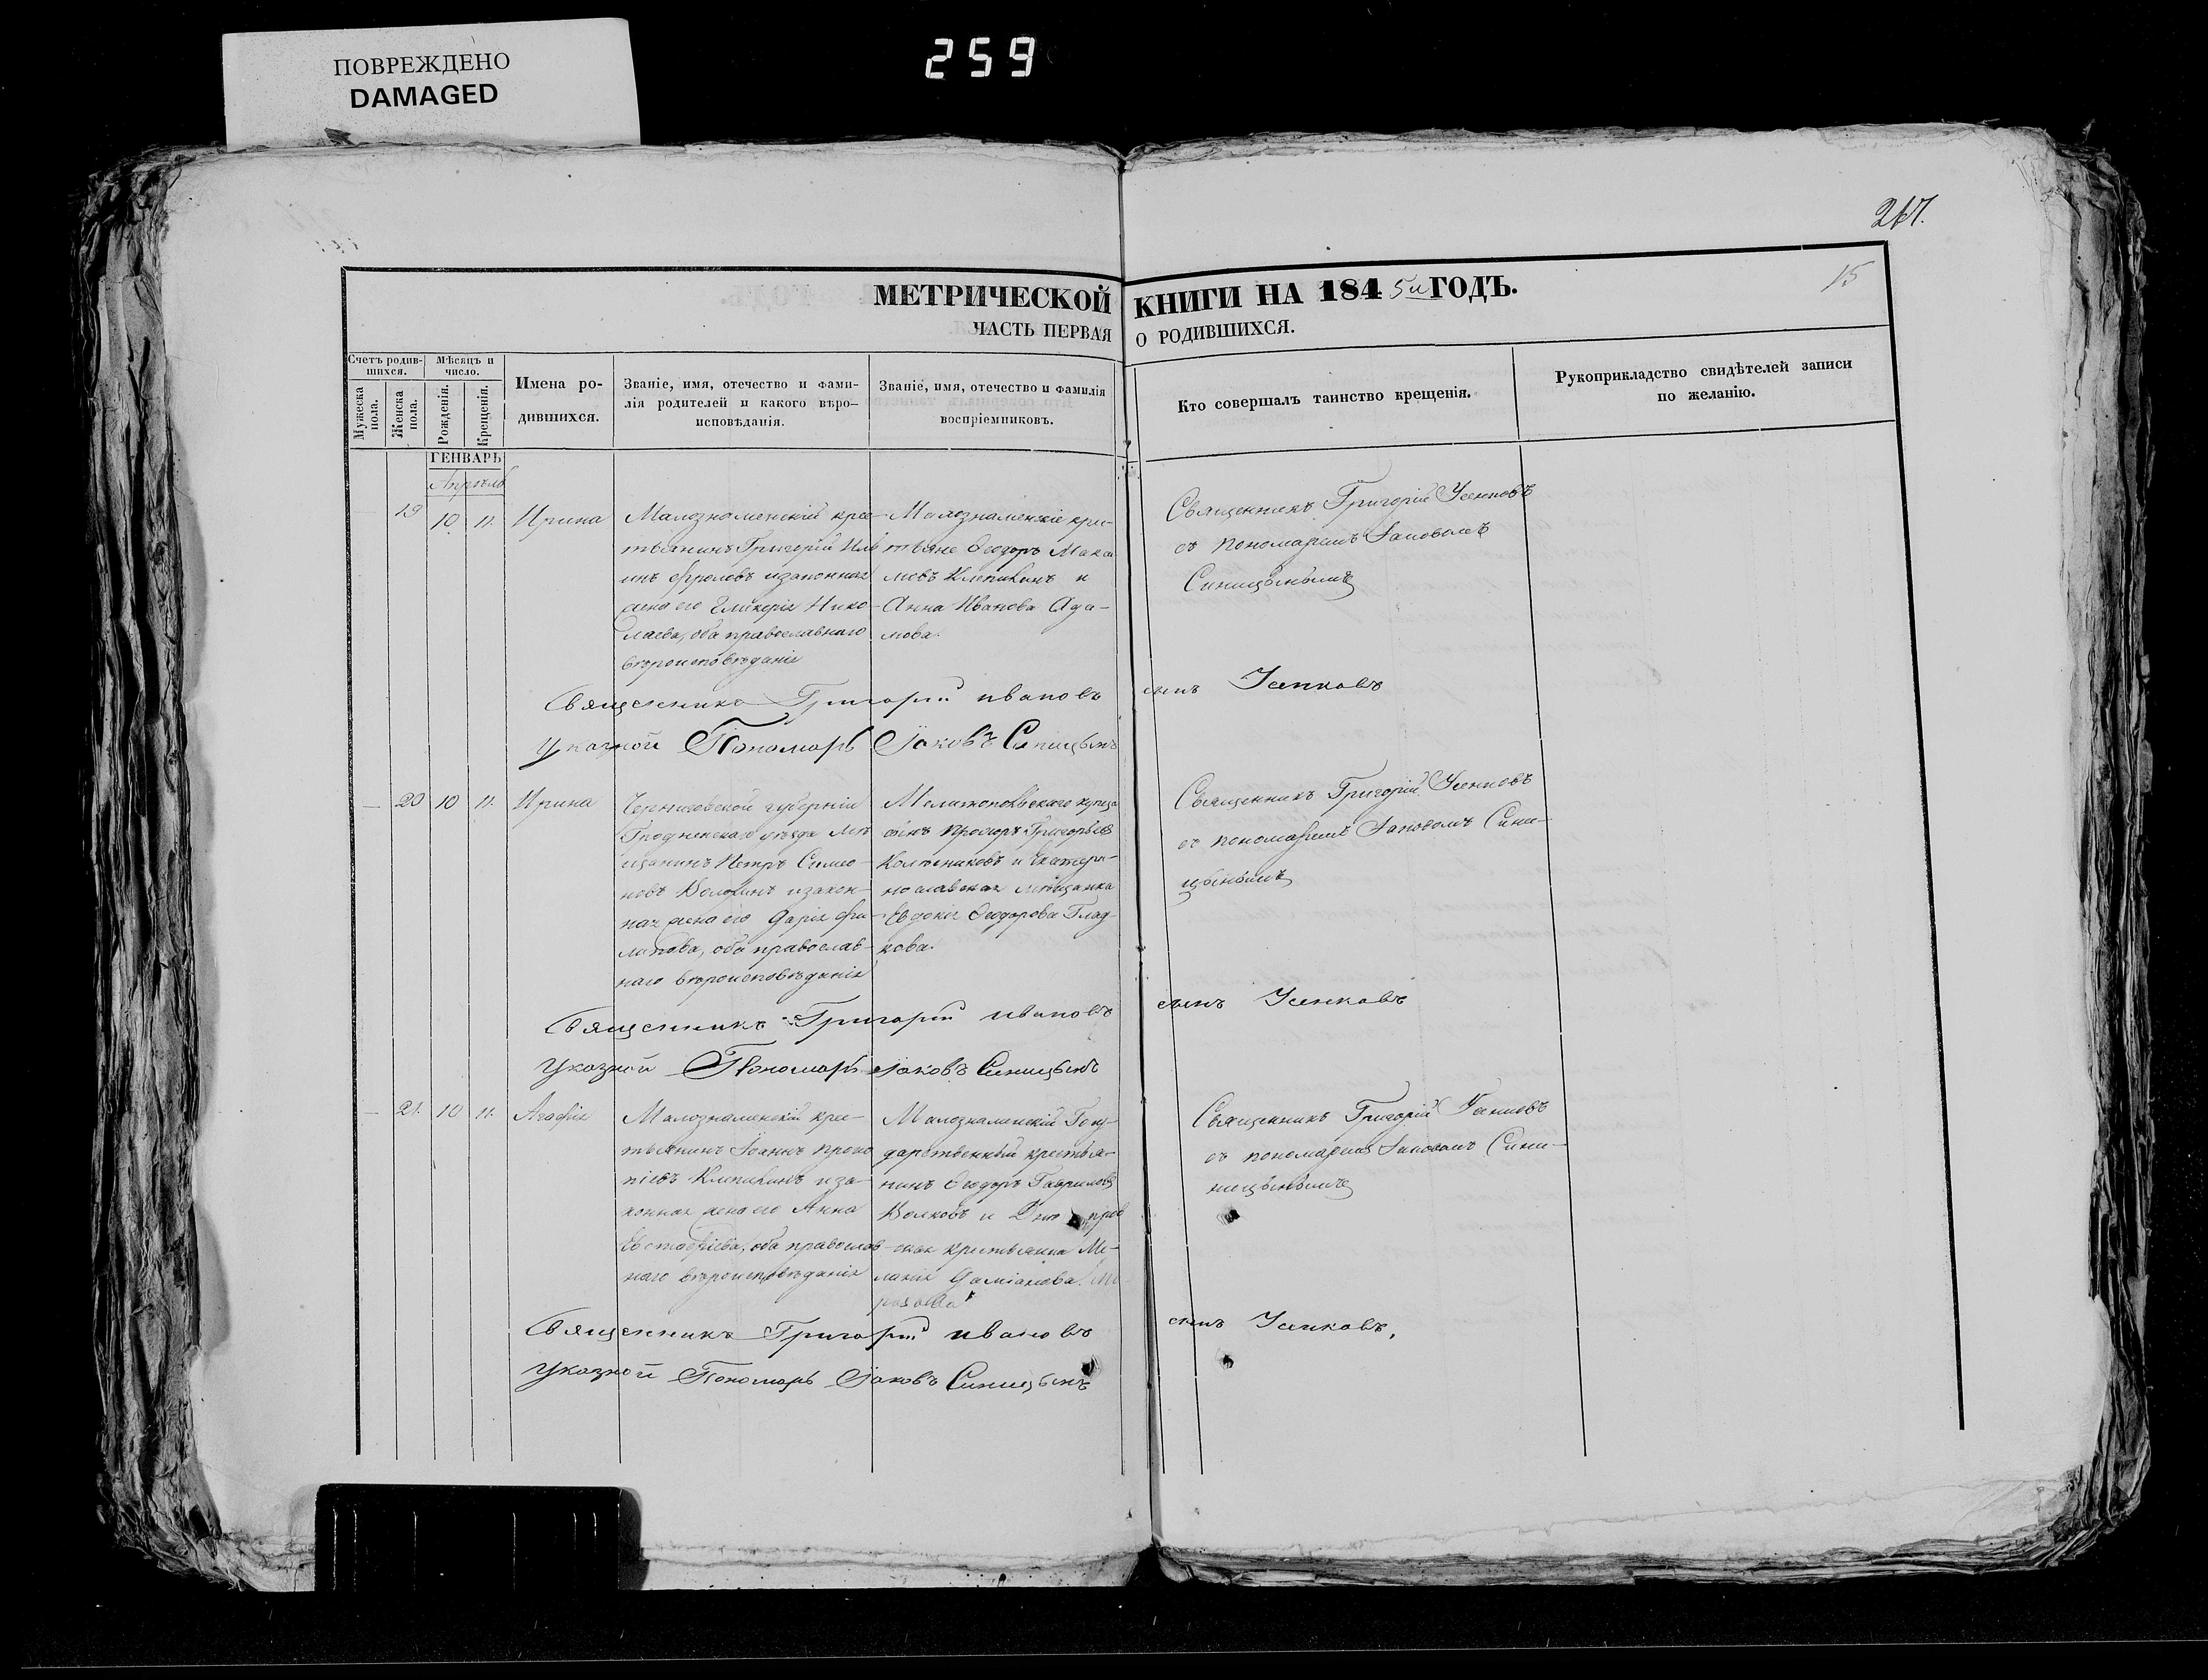 ПОВРЕЖДЕНО
DAMAGED
259
267.
15
МЕТРИЧЕСКОЙ КНИГИ НА 1845й ГОДЪ.
ЧАСТЬ ПЕРВАЯ О РОДИВШИХСЯ.
Счетъ родившихся.
Мужеска пола.
Женска пола.
Мѣсяцъ и число.
Рожденія.
Крещенія.
Имена родившихся.
Званіе, имя, отечество и фамилія родителей и какого вѣроисповѣданія.
Званіе, имя, отечество и фамилія воспріемниковъ.
Кто совершалъ таинство крещенія.
Рукоприкладство свидѣтелей записи по желанію.
ГЕНВАРЬ
Апрѣль
19 10 11. Ирина
Малознаменскій крес-
тьянинъ Григорій Иль
инъ Фроловъ и законная
жена его Гликерія Нико-
лаева, оба православнаго
вѣроисповѣданія
Малознаменскіе крес-
тьяне Ѳеодоръ Мака
ровъ Клепикинъ и
Анна Иванова Ада-
мова.
Священникъ Григорій Усенковъ
съ пономаремъ Іаковомъ
Синицынымъ
Священникъ Григорій Ивановъ сынъ Усенковъ
Указной Пономарь Іаковъ Синицынъ
— 20 10 11. Ирина
Черниговской губерніи
уѣзда мѣ
щанинъ Петръ Симео-
новъ и закон-
ная жена его Дарія Фи-
липова, оба православ-
наго вѣроисповѣданія
Мелитопольскаго купца
сынъ Григорьевъ
и Екатери-
нославская мѣщанка
Евдокія Ѳеодорова Глад-
кова.
Священникъ Григорій Усенковъ
съ пономаремъ Іаковомъ Сини-
цынымъ
Священникъ Григорій Ивановъ сынъ Усенковъ
Указной Пономарь Іаковъ Синицынъ
— 21. 10 11. Агафія
Малознаменскій крес-
тьянинъ Іоаннъ Проко
піевъ Клепикинъ и за-
конная жена его Анна
Евстафіева, оба православ-
наго вѣроисповѣданія
Малознаменскій Госу-
дарственный крестья-
нинъ Ѳеодоръ Гавриловъ
Волковъ и
ская крестьянка Ме-
ланія Даміанова
Священникъ Григорій Усенковъ
съ пономаремъ Іаковомъ Сини-
ницынымъ
Священникъ Григорій Ивановъ сынъ Усенковъ,
Указной Пономарь Іаковъ Синицынъ